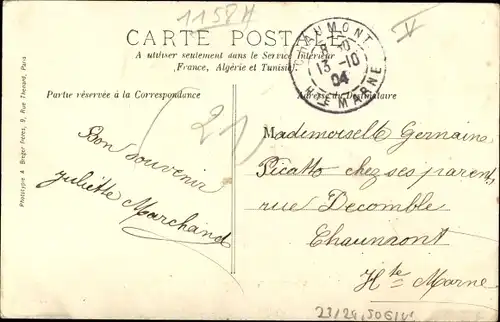 1158H
V
CARTE POSTALE
A utiliser seulement dans le Service Intérieur
(France, Algérie et Tunisie).
CHAUMONT
8-10
13-10
04
HTE MARNE
Partie réservée à la Correspondance
Adresse du Destinataire
21
Bon souvenir
Juliette Marchand
Mademoiselle Germaine
Picatto chez ses parents
rue Decomble
Chaumont
Hte Marne
Phototypie A. Breger Frères, 9, Rue Thenard, Paris